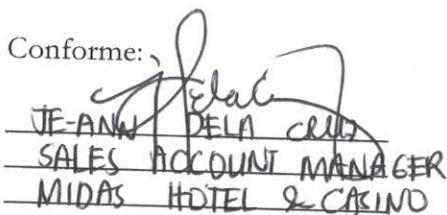 Conforme:
JE-ANN DELA CRUZ
SALES ACCOUNT MANAGER
MIDAS HOTEL & CASINO